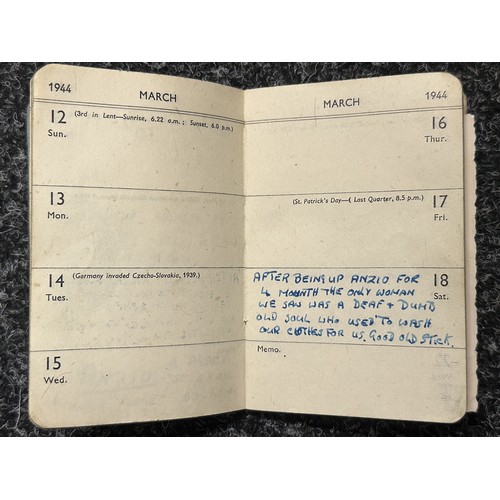 1944
MARCH
12 (3rd in Lent—Sunrise, 6.22 a.m.; Sunset, 6.0 p.m.)
Sun.
13
Mon.
14 (Germany invaded Czecho-Slovakia, 1939.)
Tues.
15
Wed.
MARCH
1944
16
Thur.
(St. Patrick's Day—☾ Last Quarter, 8.5 p.m.) 17
Fri.
18
Sat.
AFTER BEING UP ANZIO FOR
4 MOUNTH THE ONLY WOMAN
WE SAW WAS A DEAF + DUMB
OLD SOUL WHO USED TO WASH
OUR CLOTHES FOR US. GOOD OLD STICK.
Memo.